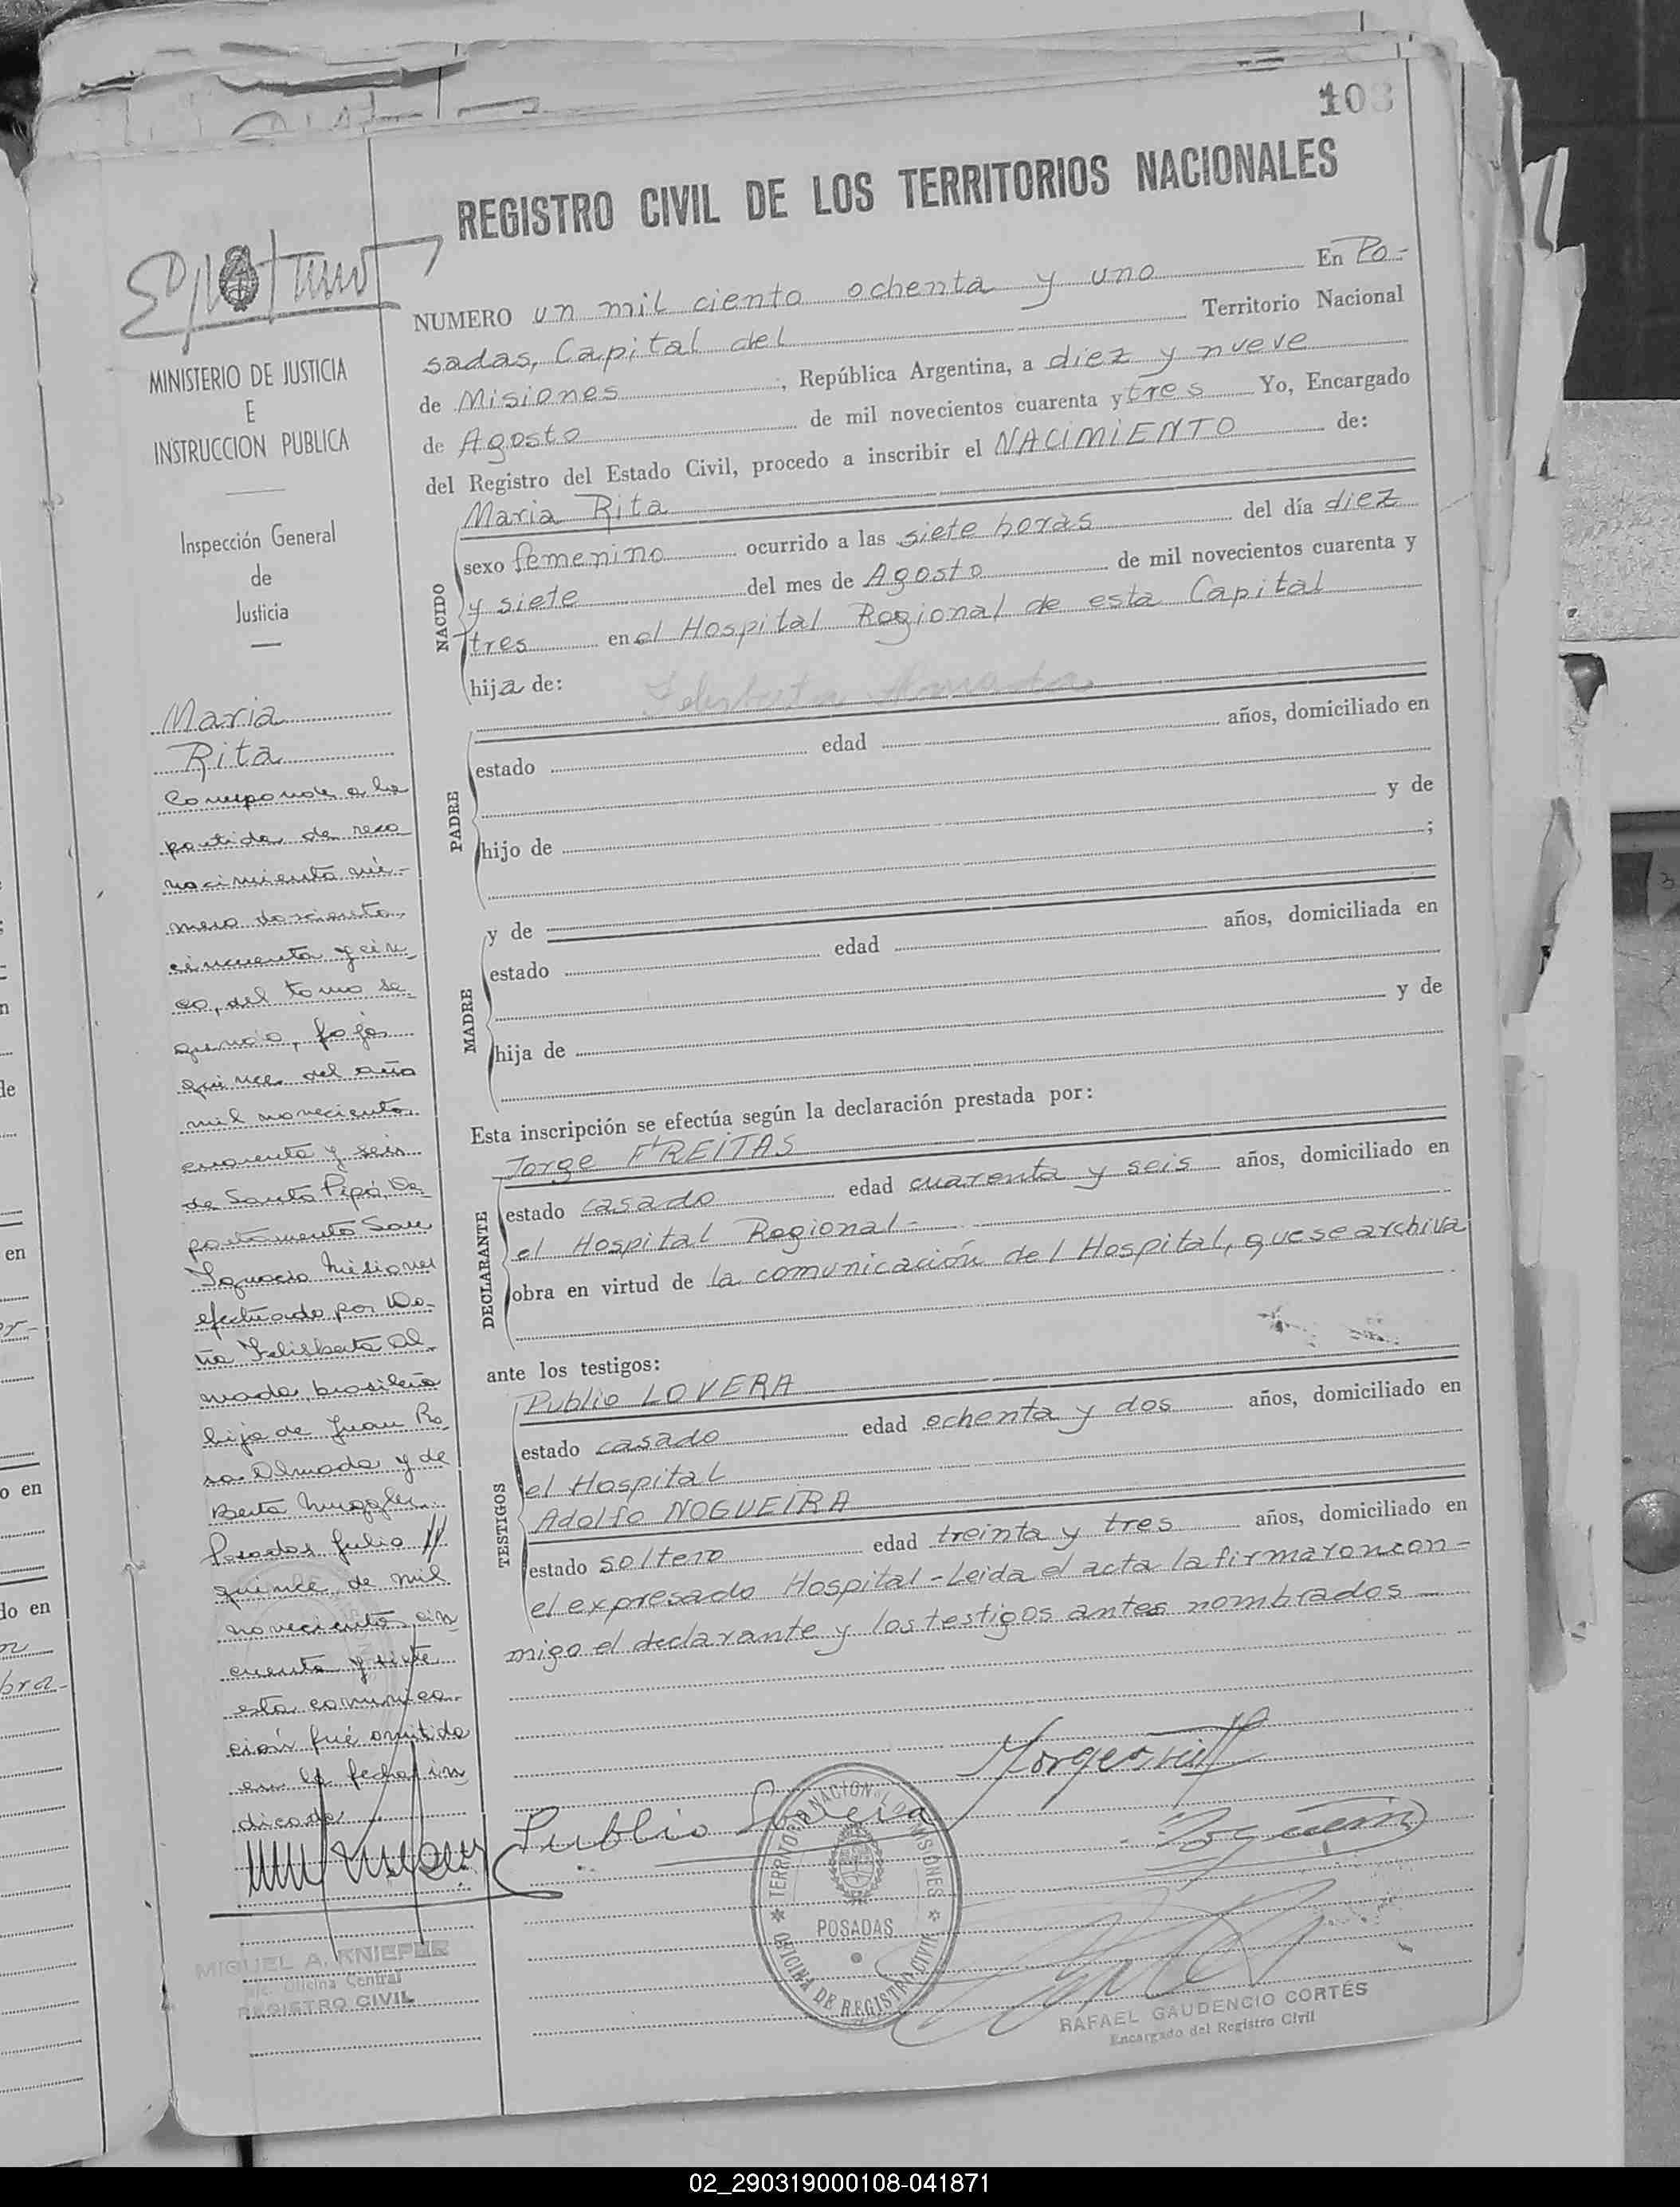 103
REGISTRO CIVIL DE LOS TERRITORIOS NACIONALES
NUMERO un mil ciento ochenta y uno En Po-
sadas, Capital del Territorio Nacional
de Misiones, República Argentina, a diez y nueve
de Agosto de mil novecientos cuarenta y tres Yo, Encargado
del Registro del Estado Civil, procedo a inscribir el NACIMIENTO de:
NACIDO
Maria Rita
sexo femenino ocurrido a las siete horas del día diez
y siete del mes de Agosto de mil novecientos cuarenta y
tres en el Hospital Regional de esta Capital
hija de:
PADRE
estado edad años, domiciliado en
y de
hijo de
;
y de
MADRE
estado edad años, domiciliada en
y de
hija de
Esta inscripción se efectúa según la declaración prestada por:
DECLARANTE
Jorge FREITAS
estado casado edad cuarenta y seis años, domiciliado en
el Hospital Regional-
obra en virtud de la comunicación del Hospital, que se archiva
ante los testigos:
TESTIGOS
Publio LOVERA
estado casado edad ochenta y dos años, domiciliado en
el Hospital
Adolfo NOGUEIRA
estado soltero edad treinta y tres años, domiciliado en
el expresado Hospital-Leida el acta la firmaron con-
migo el declarante y los testigos antes nombrados
Publio Lovera
TERRITORIO NACIONAL DE MISIONES
POSADAS
OFICINA DE REGISTRO CIVIL
RAFAEL GAUDENCIO CORTÉS
Encargado del Registro Civil
MINISTERIO DE JUSTICIA
E
INSTRUCCION PUBLICA
Inspección General
de
Justicia
Maria
Rita
Corresponde a la
partida de reco
nocimiento nú-
mero doscientos
cincuenta y cin
co, del tomo se
gundo, fojas
quince del año
mil novecientos
cuarenta y seis
de Santo Pipó, De
partamento San
Ignacio Misiones
efectuado por Do-
ña Felisberta Al
mada, brasileña
hija de Juan Ro
sa Almada y de
Berta Muggler
Posadas Julio
quince de mil
novecientos cin
cuenta y siete
esta comunica-
ción fué omitida
en la fecha in
dicada
MIGUEL A. KNIEPHE
Oficina Central
REGISTRO CIVIL
02_290319000108-041871